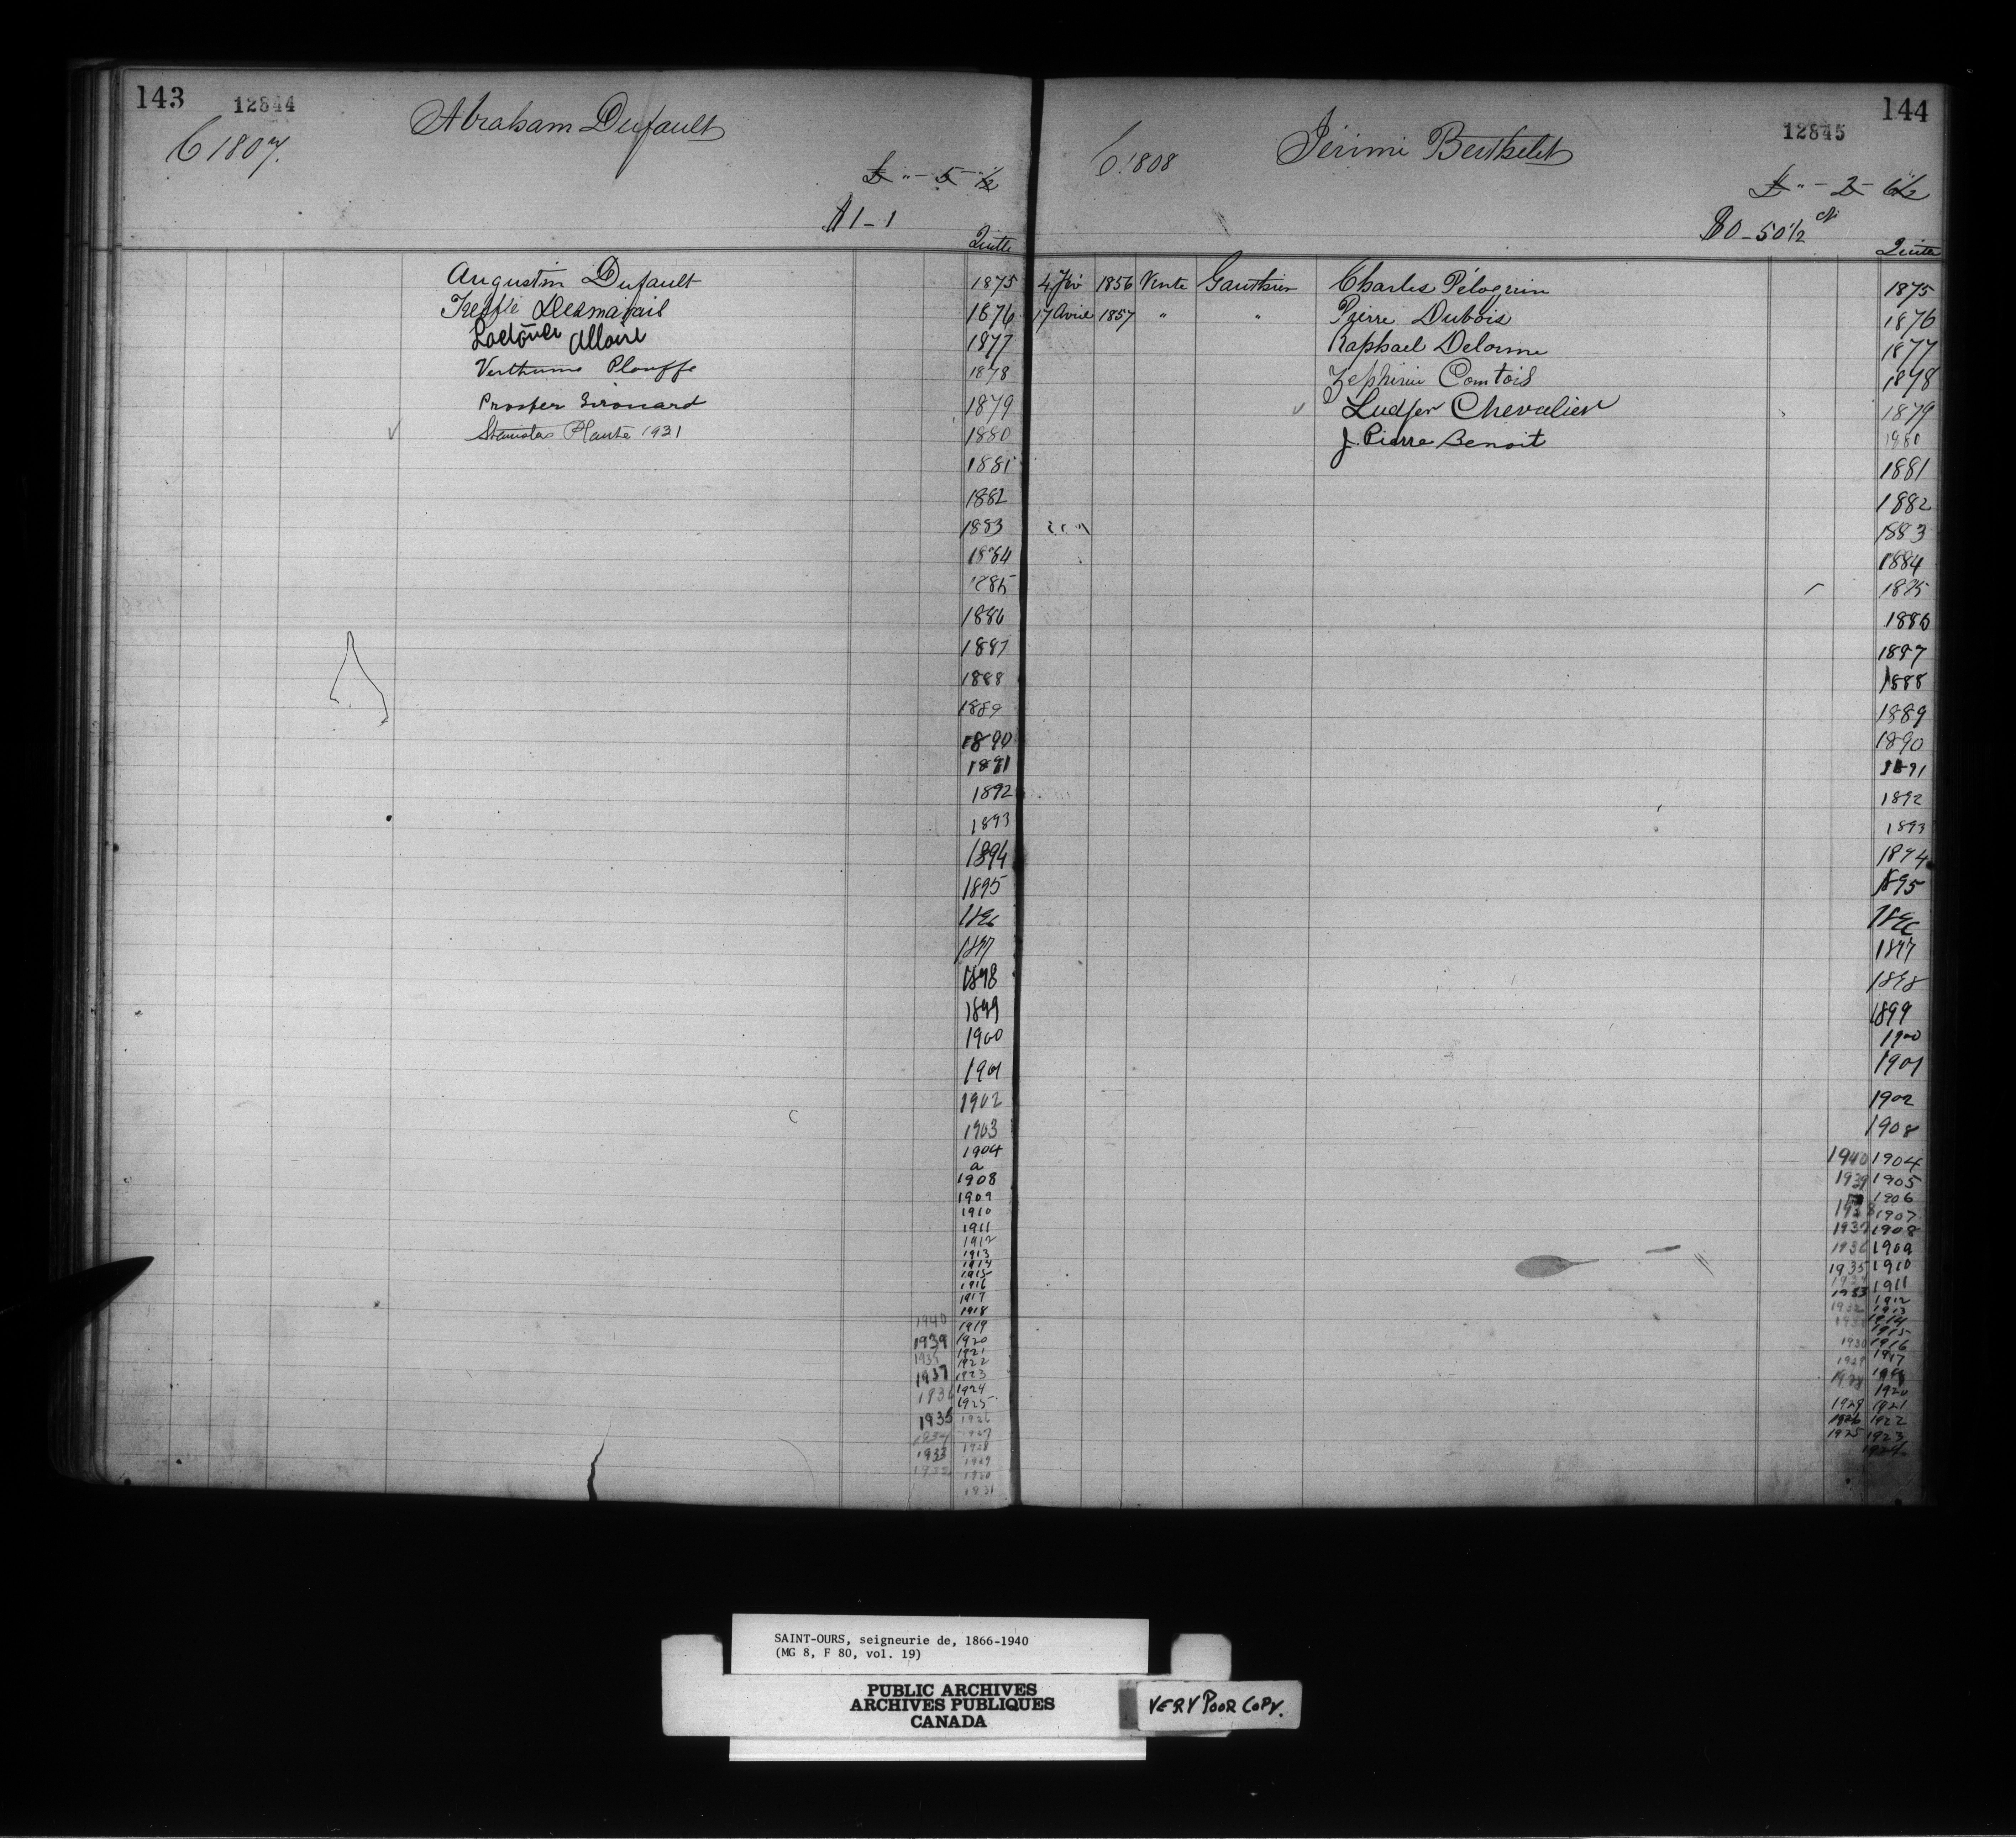 143
12844
C 1807.
Abraham Dufault
£ " - 5 - ½
$1-1
Quitte
Augustin Dufault 1875
Treflé Desmarais 1876
Allaire 1877
Plouffe 1878
Prosper Girouard 1879
Stanislas Plante 1931 1880
1881
1882
1883
1884
1885
1886
1887
1888
1889
1890
1891
1892
1893
1894
1895
1896
1897
1898
1899
1900
1901
1902
1903
1904
a
1908
1909
1910
1911
1912
1913
1914
1915
1916
1917
1918
1940 1919
1939 1920
1921
1938 1922
1937 1923
1936 1924
1925
1935 1926
1934 1927
1933 1928
1932 1929
1930
1931
144
12845
C. 1808
Jérimi Berthelet
£ " - 2 - 6½
$0-50½ cts
Quitte
4 1856 Vente Gauthier Charles Péloquin 1875
17 Avril 1857 " " Pierre Dubois 1876
Raphael Delorme 1877
Zephirin Comtois 1878
Ludger Chevalier 1879
J. Pierre Benoit 1880
1881
1882
1883
1884
1885
1886
1887
1888
1889
1890
1891
1892
1893
1894
1895
1896
1897
1898
1899
1900
1901
1902
1908
1940 1904
1939 1905
1906
1938 1907
1937 1908
1936 1909
1935 1910
1934 1911
1933 1912
1932 1913
1931 1914
1915
1930 1916
1929 1917
1928
1920
1921
1926 1922
1925 1923
1924
SAINT-OURS, seigneurie de, 1866-1940
(MG 8, F 80, vol. 19)
PUBLIC ARCHIVES
ARCHIVES PUBLIQUES
CANADA
VERY POOR COPY.